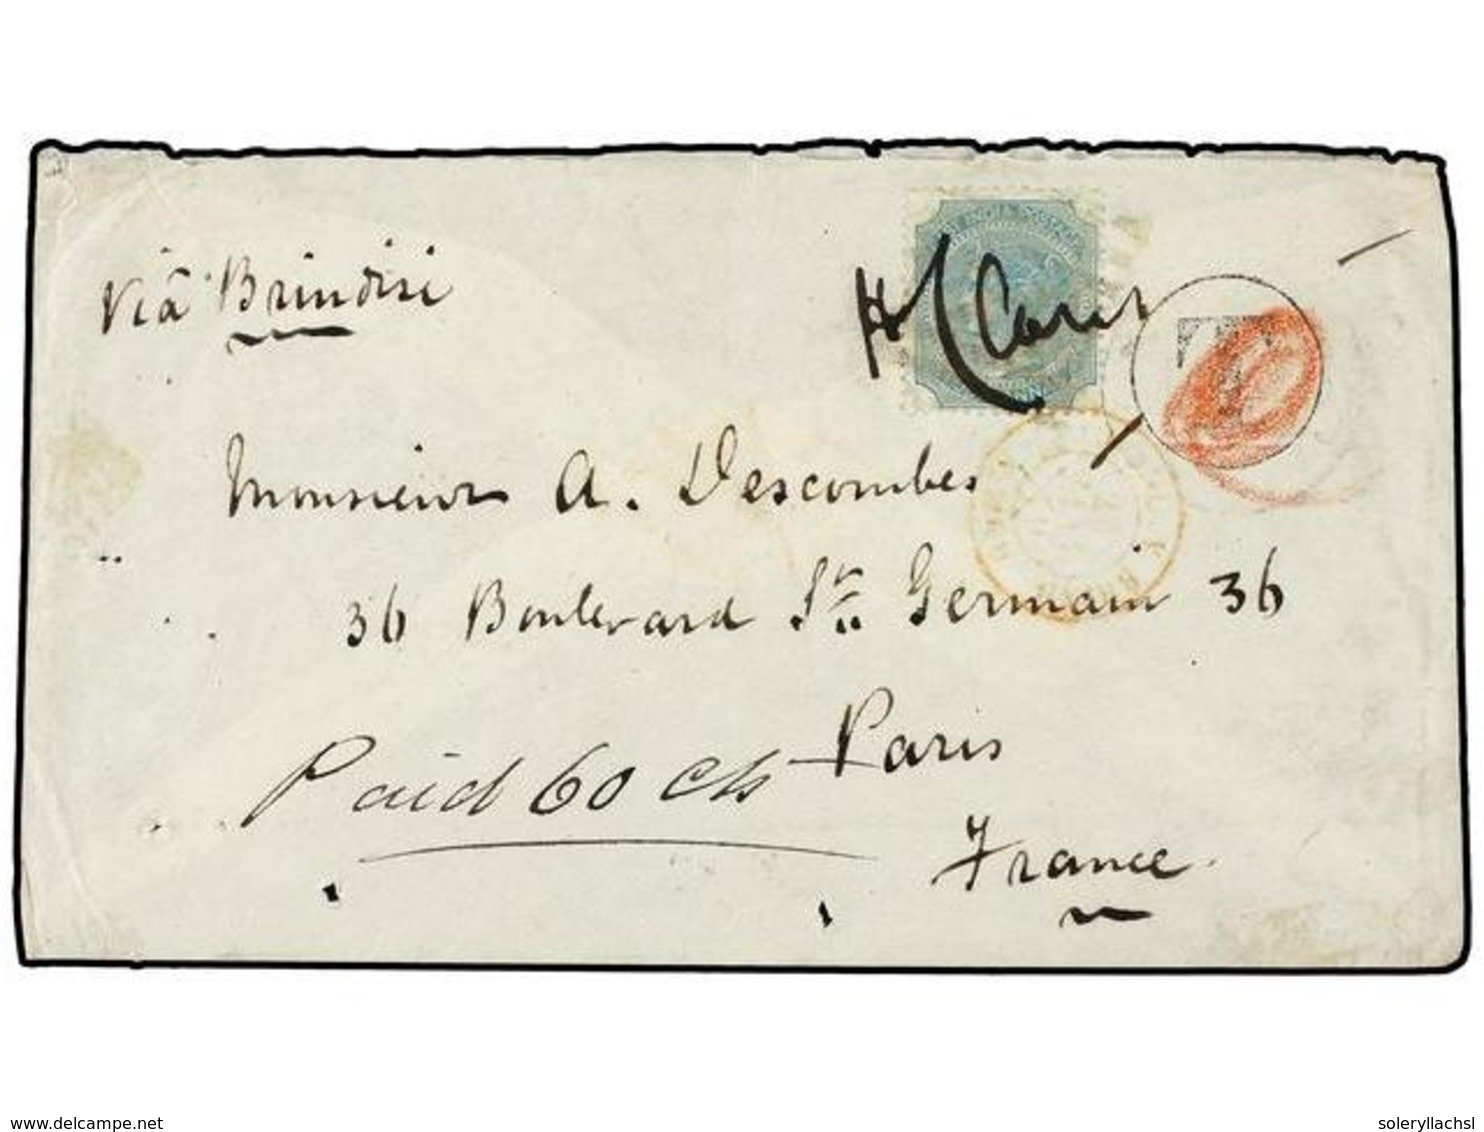 Viâ Brindisi
INDIA POSTAGE
T
Monsieur A. Descombes
36 Boulevard St. Germain 36
Paid 60 cts Paris
France
delcampe.net
soleryllachsl